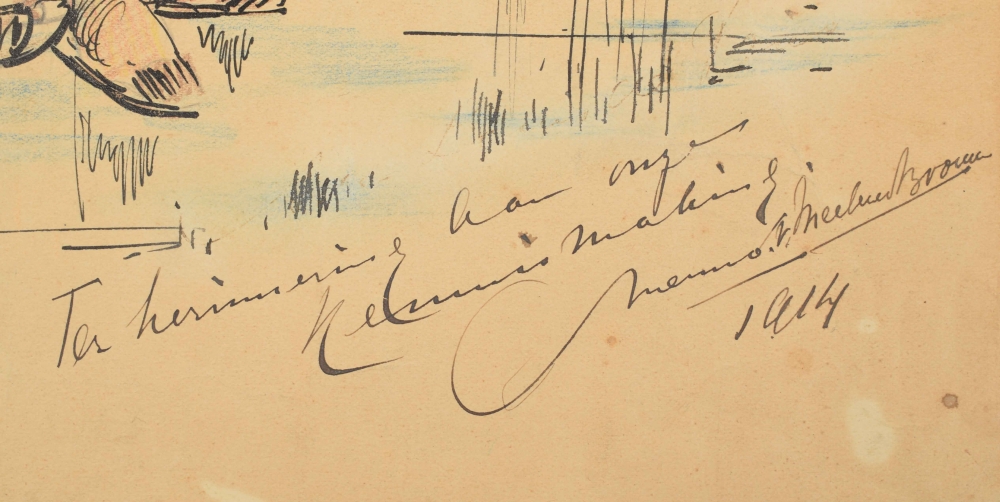 Ter herinnering aan onze
Kennismaking
Menno v Meeteren Brouwer
1914